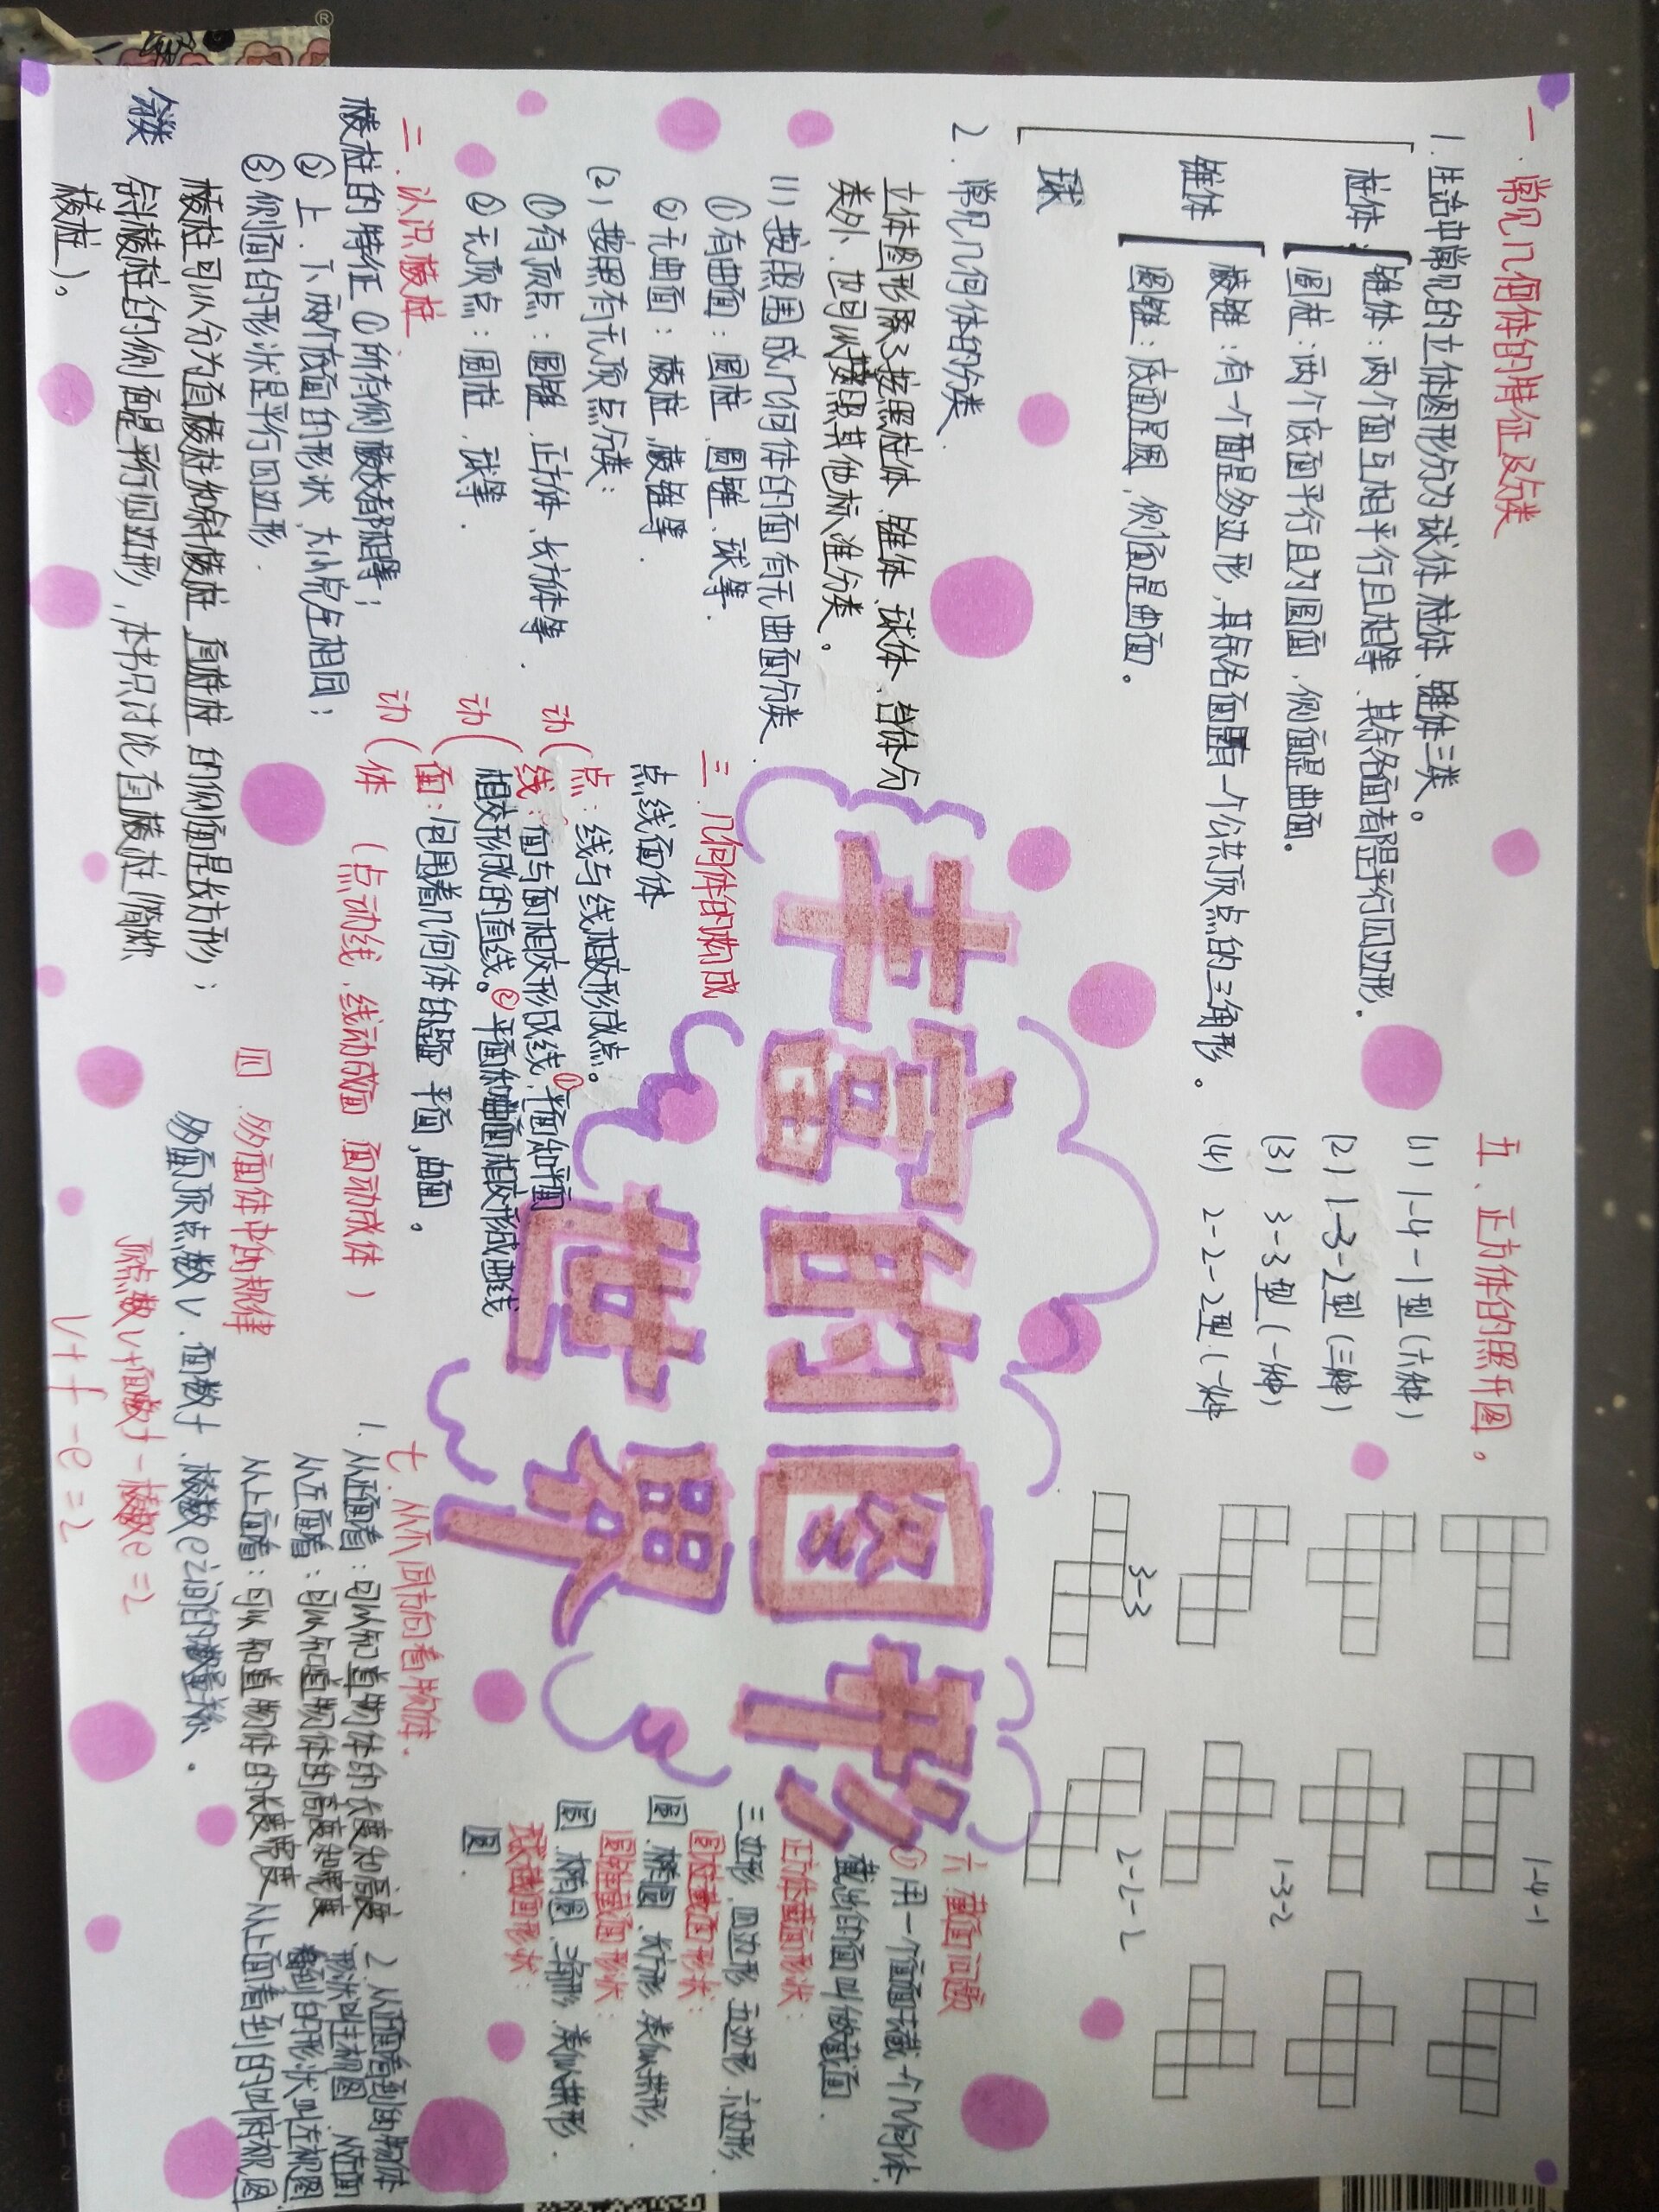 一.常见几何体的特征及分类
1.生活中常见的立体图形分为球体、柱体、锥体三类。
柱体
锥体：两个面互相平行且相等、其余各面者都是平行四边形。
圆柱：两个底面平行且为圆面，侧面是曲面。
锥体
棱锥：有一个面是多边形，其余各面是有一个公共顶点的三角形。
圆锥：底面是圆，侧面是曲面。
球
2.常见几何体的分类.
立体图形除了按照柱体、锥体、球体、台体分
类外、也可以按照其他标准分类。
(1)按照围成几何体的面有无曲面分类.
①有曲面：圆柱、圆锥、球等.
②无曲面：棱柱、棱锥等.
(2)按照有无顶点分类：
①有顶点：圆锥、正方体、长方体等.
②无顶点：圆柱、球等.
二.认识棱柱.
棱柱的特征①所有侧棱长都相等；
②上、下两个底面的形状、大小完全相同；
③侧面的形状是平行四边形.
分类
棱柱可以分为直棱柱和斜棱柱 直棱柱的侧面是长方形；
斜棱柱的侧面是平行四边形，本书只讨论直棱柱(简称
棱柱)。
丰富的图形
世界
三.几何体的构成
点线面体
点：线与线相交形成点。
线：面与面相交形成线，①平面和平面
相交形成的直线。②平面和曲面相交形成曲线
面：包围着几何体的是 平面,曲面。
体
动
动
动
(点动线、线动成面 面动成体)
四.多面体中的规律
多面顶点数v.面数f.棱数e之间的数量称.
顶点数v+面数f-棱数e=2
V+f-e=2
五、正方体的照开图。
(1) 1-4-1型(六种)
(2) 1-3-2型(三种)
(3) 3-3型(一种)
(4) 2-2-2型(一种
1-4-1
1-3-2
3-3
2-2-2
六.截面问题
①用一个面去截一个几何体
截出的面叫做截面.
正方体截面形状：
三边形.四边形.五边形.六边形
圆柱截面形状：
圆.椭圆.长方形.类似拱形.
圆锥截面形状：
圆.椭圆.三角形.类似拱形.
球截圆形状：
圆.
七.从不同方向看物体.
1.从正面看：可以知道物体的长度和高度
从左面看：可以知道物体的高度和宽度
从上面看：可以知道物体的长度宽度
2.从正面看到的物体
形状叫主视图 从左面
看到的形状叫左视图
从上面看到的叫府视图